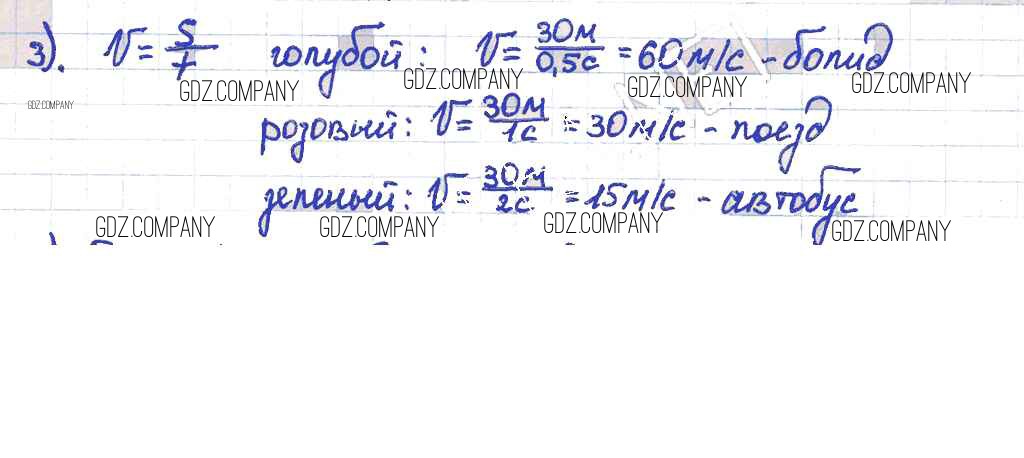 3). V = S/t голубой: V = 30м/0,5с = 60 м/с - болид
GDZ.COMPANY GDZ.COMPANY GDZ.COMPANY GDZ.COMPANY
GDZ.COMPANY
розовый: V = 30м/1с = 30 м/с - поезд
зеленый: V = 30м/2с. = 15 м/с - автобус
GDZ.COMPANY GDZ.COMPANY GDZ.COMPANY GDZ.COMPANY